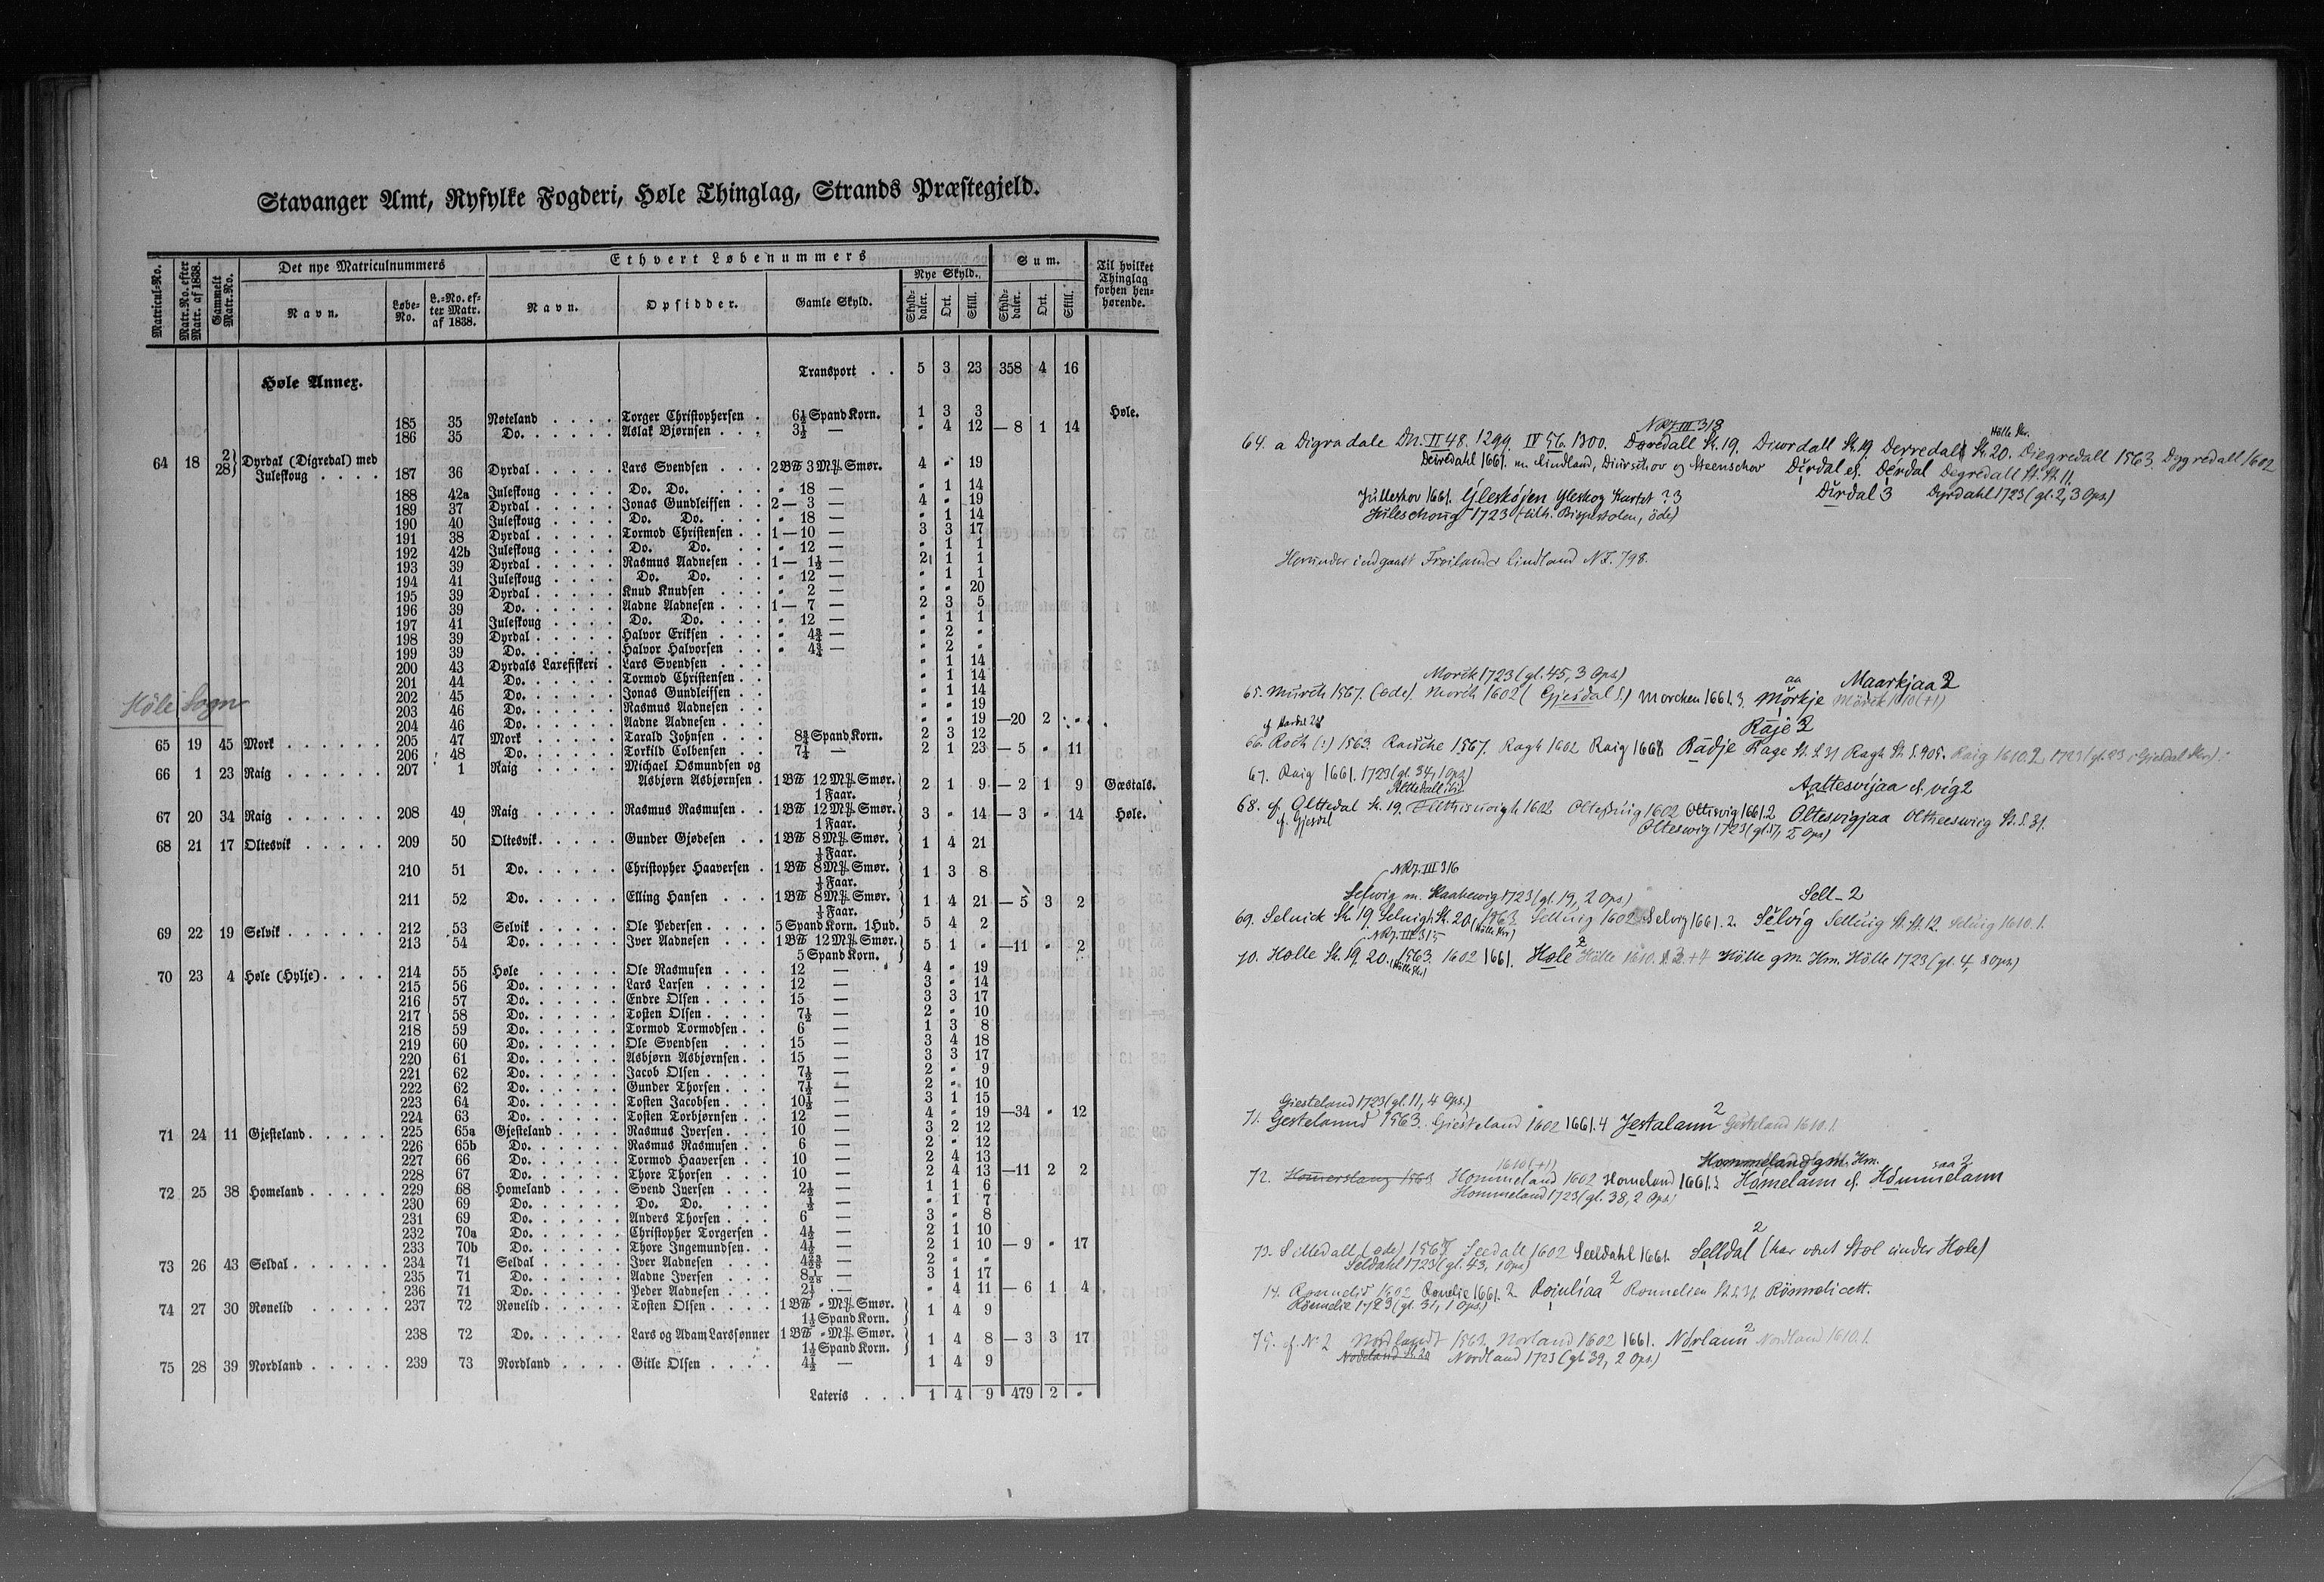 Stavanger Amt, Ryfylke Fogderi, Høle Thinglag, Strands Præstegjeld.
Matricul-No. Matr.No. efter Matr. af 1838. Gammelt Matr.No. Det nye Matriculnummers Ethvert Løbenummers Sum. Til hvilket Thinglag forhen henhørende.
Navn. Løbe-No. L.-No. efter Matr. af 1838. Navn. Opsidder. Gamle Skyld. Nye Skyld. Skylddaler. Ort. Skill. Skylddaler. Ort. Skill.
Høle Annex. Transport . . 5 3 23 358 4 16
185 35 Nøteland . . . . Torger Christophersen . 6½ Spand Korn. 1 3 3 Høle.
186 35 Do. . . . . . Aslak Bjørnsen . . . 3½ — " 4 12 — 8 1 14
64 18 2 28} Dyrdal (Digredal) med
Juleskoug . . . . 187 36 Dyrdal . . . . . Lars Svendsen . . . 2 B℔ 3 M℔ Smør. 4 " 19
188 42a Juleskoug . . . . Do. Do. . . . " 18 — " 1 14
189 37 Dyrdal . . . . . Jonas Gundleiksen . . 2 — 3 — 4 " 19
190 40 Juleskoug . . . . Do. Do. . . . " 18 — " 1 14
191 38 Dyrdal . . . . . Tormod Christensen . . 1 — 10 — 3 3 17
192 42b Juleskoug . . . . Do. Do. . . . " 12 — " 1 1
193 39 Dyrdal . . . . . Rasmus Aadnesen . . 1 — 1½ — 2 1 1
194 41 Juleskoug . . . . Do. Do. . . . " 12 — " 1 1
195 39 Dyrdal . . . . . Knud Knudsen . . . " 2 — " " 20
196 39 Do. . . . . . Aadne Aadnesen . . . 1 — 7 — 2 3 5
197 41 Juleskoug . . . . Do. Do. . . . " 12 — " 1 1
198 39 Dyrdal . . . . . Halvor Eriksen . . . " 4¾ — " 2 "
199 39 Do. . . . . . Halvor Halvorsen . . " 4¾ — " 2 "
200 43 Dyrdals Laxefiskeri . Lars Svendsen . . . " 1 14
201 44 Do. . . . . . Tormod Christensen . . " 1 14
Høle Sogn
202 45 Do. . . . . . Jonas Gundleiksen . . " 1 14
203 46 Do. . . . . . Rasmus Aadnesen . . " " 19
204 46 Do. . . . . . Aadne Aadnesen . . . " " 19 —20 2 "
65 19 45 Mork . . . . . . 205 47 Mork . . . . . Tarald Johnsen . . . 8¾ Spand Korn. 2 3 12
206 48 Do. . . . . . Torkild Colbensen . . 7¼ — 2 1 23 — 5 " 11
66 1 23 Raig . . . . . . 207 1 Raig . . . . . . Michael Osmundsen og
Asbjørn Asbjørnsen . 1 B℔ 12 M℔ Smør. 1 Faar. 2 1 9 — 2 1 9 Gæstals.
67 20 34 Raig . . . . . . 208 49 Raig . . . . . . Rasmus Rasmusen . . 1 B℔ 12 M℔ Smør. 1 Faar. 3 " 14 — 3 " 14 Høle.
68 21 17 Oltesvik . . . . . 209 50 Oltesvik . . . . . Gunder Gjødesen . . 1 B℔ 8 M℔ Smør. ⅓ Faar. 1 4 21
210 51 Do. . . . . . Christopher Haaversen . 1 B℔ 8 M℔ Smør. ⅓ Faar. 1 3 8
211 52 Do. . . . . . Elling Hansen . . . 1 B℔ 8 M℔ Smør. ⅓ Faar. 1 4 21 — 5 3 2
69 22 19 Selvik . . . . . . 212 53 Selvik . . . . . Ole Pedersen . . . . 5 Spand Korn. 1 Hud. 5 4 2
213 54 Do. . . . . . Iver Aadnesen . . . 1 B℔ 12 M℔ Smør. 5 Spand Korn. 5 1 " —11 " 2
70 23 4 Høle (Hylje) . . . . 214 55 Høle . . . . . Ole Rasmusen . . . 12 — 4 " 19
215 56 Do. . . . . . Lars Larsen . . . . 12 — 3 " 14
216 57 Do. . . . . . Endre Olsen . . . . 15 — 3 3 17
217 58 Do. . . . . . Tosten Olsen . . . . 7½ — 2 " 10
218 59 Do. . . . . . Tormod Tormodsen . . 6 — 1 3 8
219 60 Do. . . . . . Ole Svendsen . . . 15 — 3 4 18
220 61 Do. . . . . . Asbjørn Asbjørnsen . . 15 — 3 3 17
221 62 Do. . . . . . Jacob Olsen . . . . 7½ — 2 " 9
222 62 Do. . . . . . Gunder Thorsen . . . 7½ — 2 " 10
223 64 Do. . . . . . Tosten Jacobsen . . . 10½ — 3 1 15
224 63 Do. . . . . . Tosten Torbjørnsen . . 12 — 4 " 19 —34 " 12
71 24 11 Gjesteland . . . . . 225 65a Gjesteland . . . . Rasmus Iversen . . . 10 — 3 2 12
226 65b Do. . . . . . Rasmus Rasmusen . . 6 — 2 " 12
227 66 Do. . . . . . Tormod Haaversen . . 10 — 2 4 13
228 67 Do. . . . . . Thore Thorsen . . . 10 — 2 4 13 —11 2 2
72 25 38 Homeland . . . . . 229 68 Homeland . . . . Svend Iversen . . . 2½ — 1 1 6
230 69 Do. . . . . . Do. Do. . . . ½ — " 1 7
231 69 Do. . . . . . Anders Thorsen . . . 6 — 3 " 8
232 70a Do. . . . . . Christopher Torgersen . 4½ — 2 1 10
233 70b Do. . . . . . Thore Ingemundsen . . 4½ — 2 1 10 — 9 " 17
73 26 43 Seldal . . . . . . 234 71 Seldal . . . . . Iver Aadnesen . . . 2 " "
235 71 Do. . . . . . Aadne Iversen . . . 3 1 17
236 71 Do. . . . . . Peder Aadnesen . . . " 4 11 — 6 1 4
74 27 30 Rønelid . . . . . 237 72 Rønelid . . . . . Tosten Olsen . . . . 1 B℔ " M℔ Smør. 1½ Spand Korn. 1 4 9
238 72 Do. . . . . . Lars og Adam Larssønner 1 B℔ " M℔ Smør. 1½ Spand Korn. 1 4 8 — 3 3 17
75 28 39 Nordland . . . . . 239 73 Nordland . . . . Gitle Olsen . . . . 4½ — 1 4 9
Lateris . . . 1 4 9 479 2 "
NRJ. III 318
64. a Digradale Dn. II 48. 1299 IV 56. 1300. Døredall Sk. 19. Diurdall Sk. 19 Derredall Sk. 20. Diegredall 1563. Dygredall 1602
Deiredahl 1661. m. Lindland, Diurschov og Steenschov Dirdal el. Derdal Degredall St. St. 11.
Julleskov 1661. Gleskojen Yleskog Kartet ? 3 Dirdal 3 Dyrdahl 1723 (gl. 2, 3 Ops)
Juleschoug 1723 (tilh. Bispestolen, øde)
Herunder indgaaet Frøiland & Lindland N.F. 798.
Morck 1723 (gl. 45, 3 Ops) aa Maarkjaa 2
65. Murch 1567. (øde). Morch 1602 (Gjesdal S.) Morchen 1661. 3. Mørkje Mörck 1610 (+1)
Räje 2
66. Roch (:) 1563. Rauche 1567. Ragh 1602 Raig 1668 Rädje Rage St. S. 31 Ragh St. S. 905. Raig 1610. 2. 1723 (gl. 23 i Gjesdal Skr)
67. Raig 1661. 1723 (gl. 34, 1 Ops)
Aaltesvijaa el. vig 2
68. cf. Olttedal Sk. 19. 1602 Oltesuig 1602 Oltisvig 1661. 2 Oltesvigjaa Oltheeswig St. S. 31.
cf. Gjesdal Olteswig 1723 (gl. 17, 2 Ops)
NRJ. III 316
Selwig m. Kaahewig 1723 (gl. 19, 2 Ops) Sell- 2
69. Selnick Sk. 19. Seluigh Sk. 20 (Hölle Skr) 1563 Selluig 1602. Selvig 1661. 2. Selvig Selluig St. St. 12. Seluig 1610. 1.
NRJ. III 315
70. Holle Sk. 19. 20. (Hölle Sk.) 1563. 1602 1661. Hole 2 Hölle 1610. 3 + 4 Hölle gm. Hm. Hölle 1723 (gl. 4, 8 Ops)
Giesteland 1723 (gl. 11, 4 Ops.)
71. Gestelannd 1563. Giesteland 1602 1661. 4 Jestalann 2 Gesteland 1610. 1.
1610 (+1) Hommeland gm. Hm. saa 2
72. Homerslang 1563 Hommeland 1602 Homeland 1661. 2 Hömelann el. Hömmelann
Hommeland 1723 (gl. 38, 2 Ops)
73. Selledall (øde) 1567 Seedall 1602 Seeldahl 1661. Selldal 2 (har været Støl under Hole)
Seldahl 1723 (gl. 43, 1 Ops)
74. Ronnelid 1602 Ronelie 1661. 2 Roinliaa 2 Ronnelien St. S. 31 Römmelicett.
Rönnelie 1723 (gl. 31, 1 Ops)
75. cf. N. 2 Nordlandt 1563. Norland 1602 1661. Nörlann 2 Nordland 1610. 1.
Nodeland Sk 20 Nordland 1723 (gl. 39, 2 Ops)